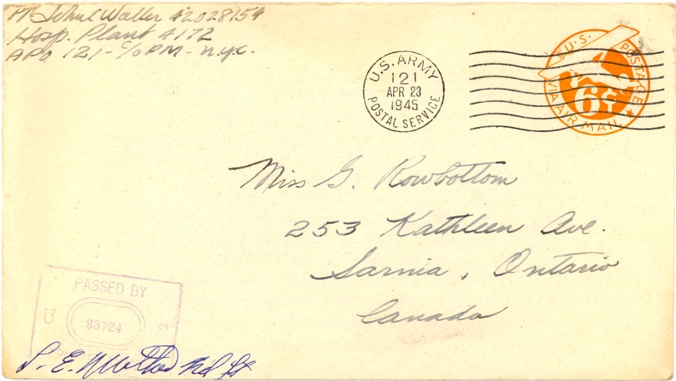 Pvt John C Waller 42028154
Hosp. Plant 4172
APO 121 - c/o PM - N.Y.C.
U.S. ARMY
121
APR 23
1945
POSTAL SERVICE
U.S. POSTAGE
6¢
VIA AIR MAIL
Miss G. Rowbottom
253 Kathleen Ave.
Sarnia, Ontario
Canada
PASSED BY
U
33724
S. E.